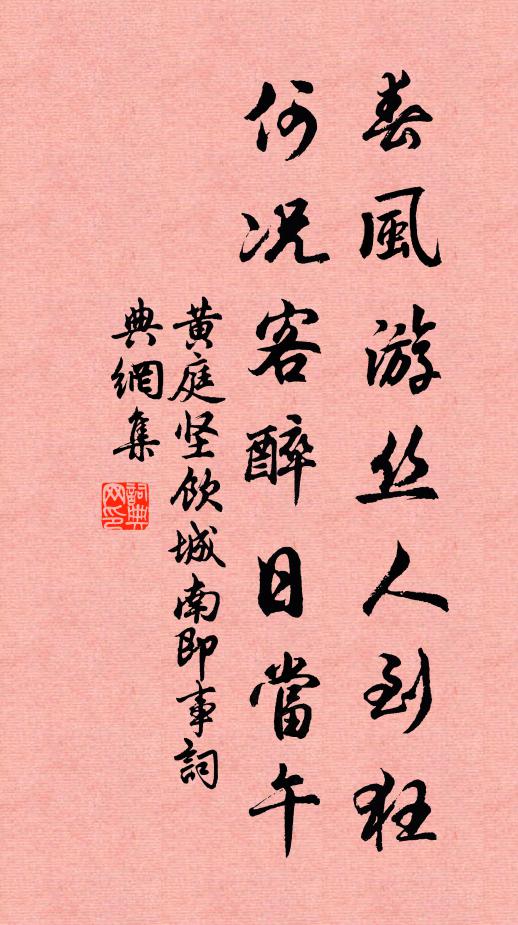 春風游丝人到狂
何况客醉日當午
黄庭坚飲城南即事詞
典網集
詞典网印